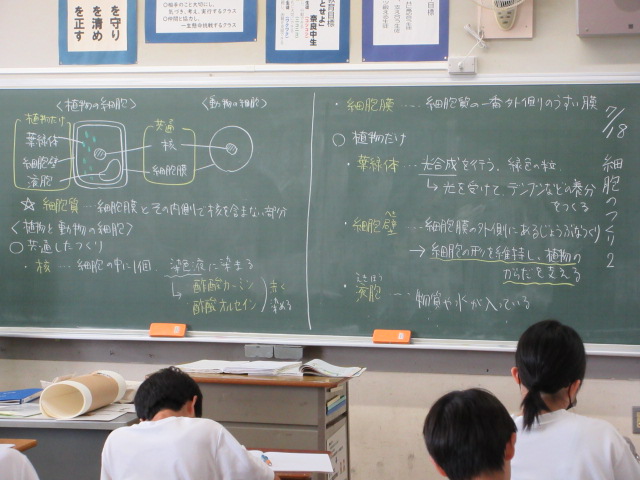 を守り
を清め
を正す
〈植物の細胞〉
〈動物の細胞〉
植物だけ
葉緑体
細胞壁
液胞
共通
核
細胞膜
☆ 細胞質…細胞膜とその内側で核を含まない部分
〈植物と動物の細胞〉
○共通したつくり
・核 …細胞の中に1個. 染色液に染まる
↳ 酢酸カーミン
酢酸オルセイン
赤く
染める
・細胞膜 … 細胞質の一番外側のうすい膜
○ 植物だけ
・葉緑体 … 光合成を行う、緑色の粒.
↳ 光を受けて、デンプンなどの養分
をつくる
・細胞壁 …細胞膜の外側にあるじょうぶなつくり
へき
→ 細胞の形を維持し、植物の
からだを支える
えきほう
・液胞 … 物質や水が入っている
7/18
細胞のつくり2